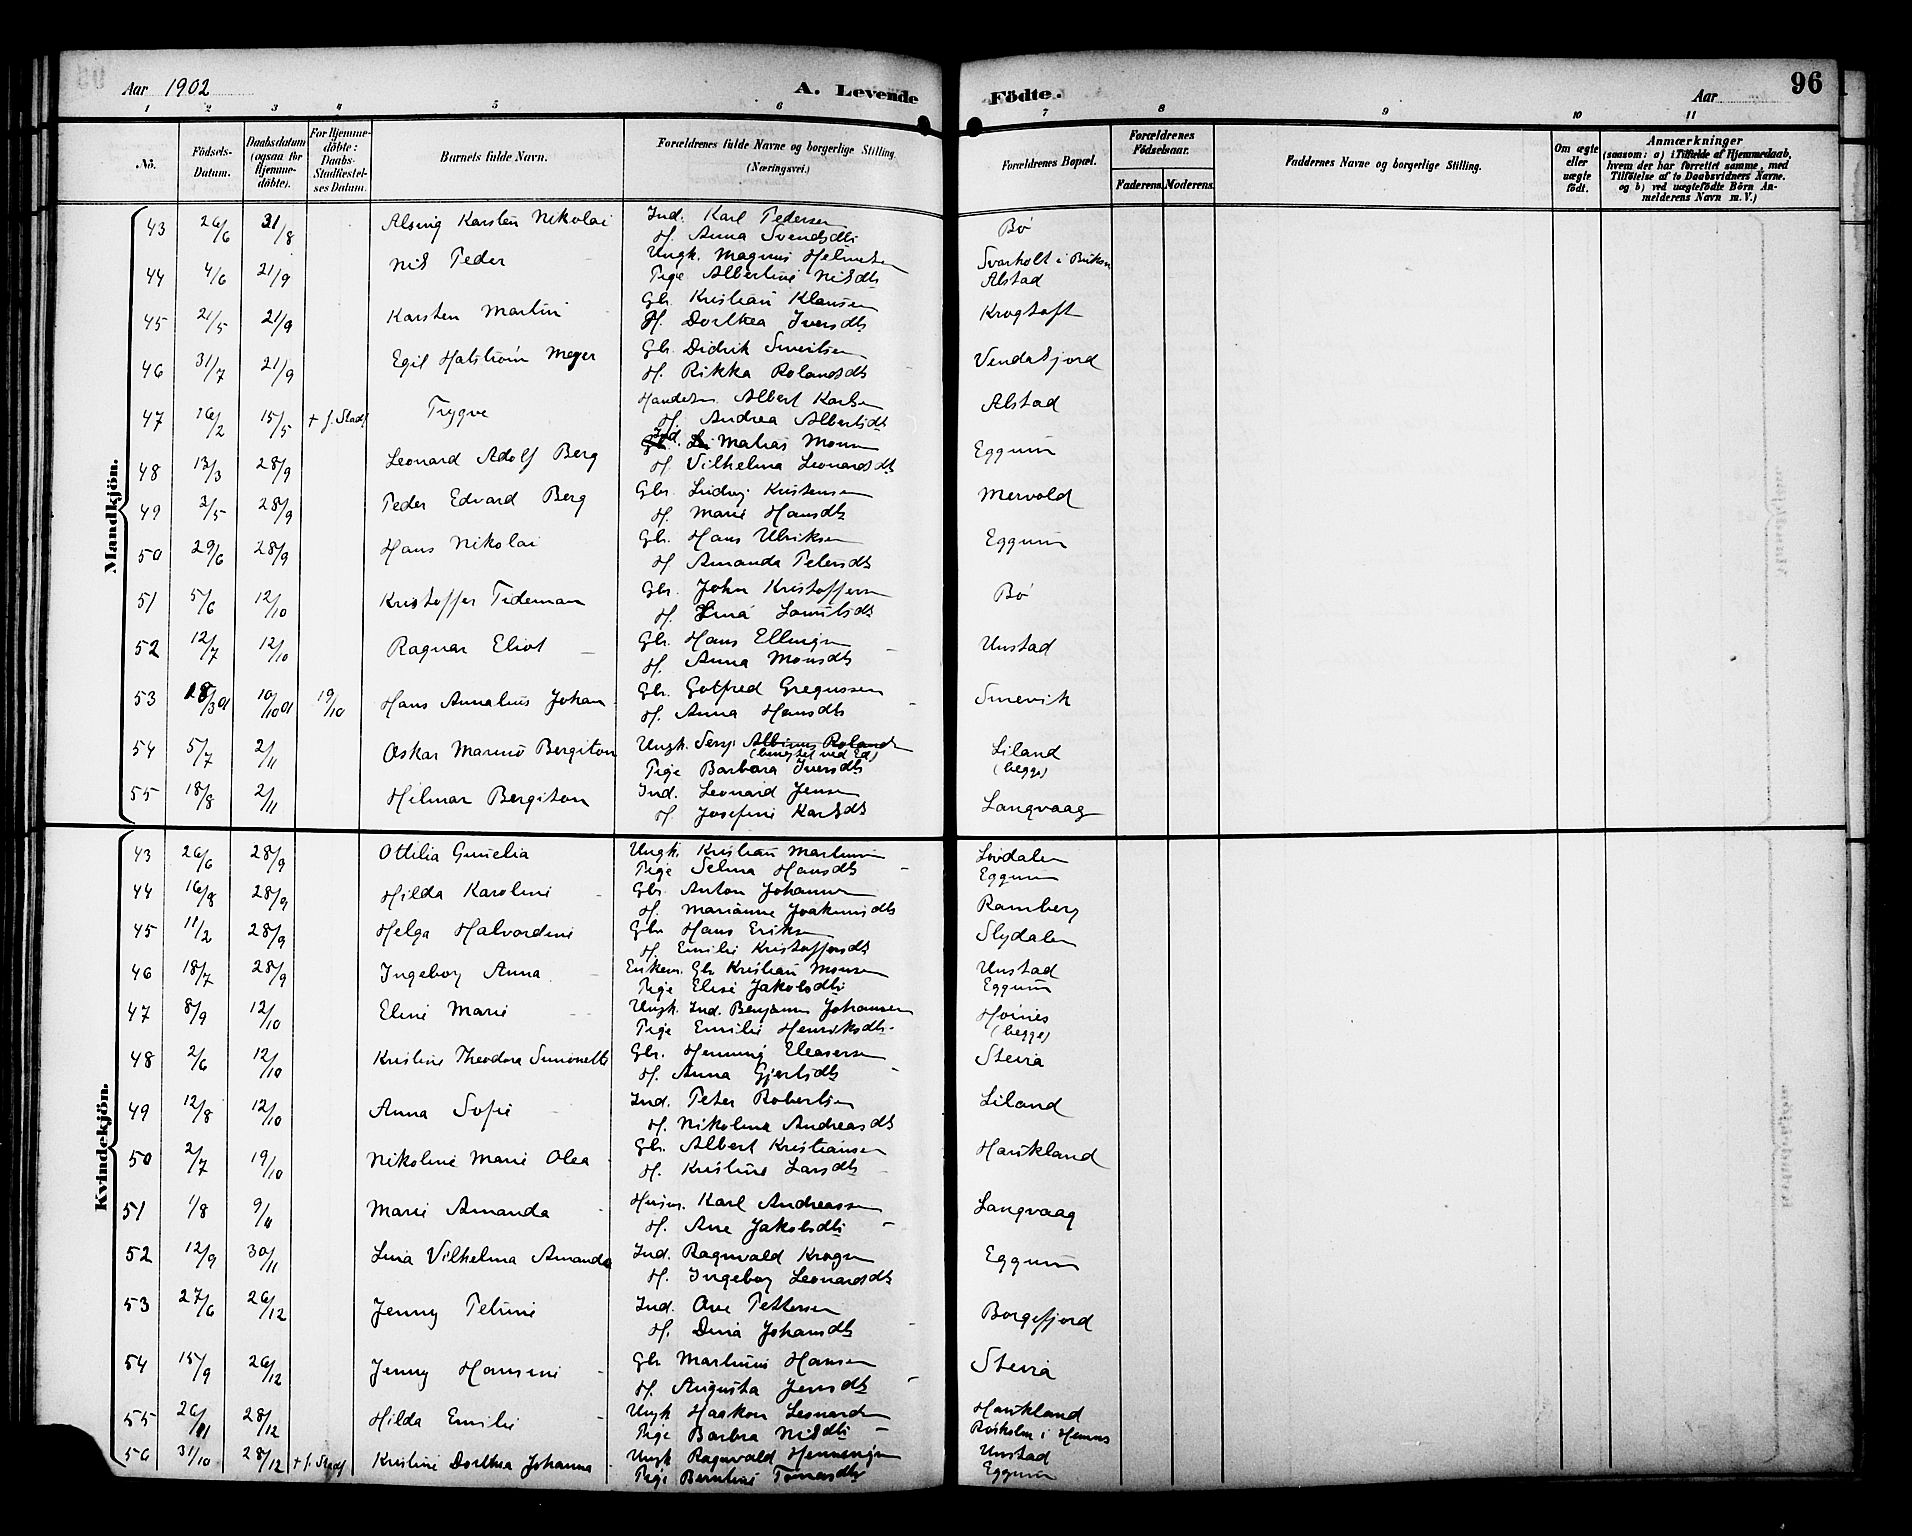 Aar 1902
A. Levende
Födte.
Aar
96
1 2 3 4 5 6 7 8 9 10 11
No.
Födsels-Datum.
Daabsdatum (ogsaa for Hjemme-döbte).
For Hjemme-döbte: Daabs-Stadfæstel-ses Datum.
Barnets fulde Navn.
Forældrenes fulde Navne og borgerlige Stilling. (Næringsvei.)
Forældrenes Bopæl.
Forældrenes Födselsaar.
Faderens. Moderens.
Faddernes Navne og borgerlige Stilling.
Om ægte eller uægte födt.
Anmærkninger
(saasom: a) i Tilfælde af Hjemmedaab, hvem der har forrettet samme, med Tilföielse af to Daabsvidners Navne, og b) ved uægtefödte Börn An-melderens Navn m. V.)
Mandkjön.
43 26/6 31/8 Alsing Karsten Nikolai Ind. Karl Pedersen Bø
H. Anna Svendsdtr
44 4/6 21/9 Nils Peder Ungk. Magnus Helmersen
Pige Albertine Nilsdtr Alstad
45 21/5 21/9 Karsten Martin Gbr. Kristian Klausen Krogtoft
H. Dorthea Iversdtr
46 31/7 21/9 Egil Halstrøm Meyer Gbr. Didrik Sivertsen Vendalsjord
H. Rikka Rolandsdtr
47 16/2 15/5 + f. Stadf. Trygve Handelsm. Albert Karlsen Alstad
H. Andrea Albertsdtr
48 13/3 28/9 Leonard Adolf Berg Ind. Matias Monsen Eggum
H. Vilhelma Leonardsdtr
49 3/5 28/9 Peder Edvard Berg Gbr. Ludvig Kristensen Mervold
H. Marie Hansdtr
50 29/6 28/9 Hans Nikolai Gbr. Hans Ulriksen Eggum
H. Amanda Petersdtr
51 5/6 12/10 Kristoffer Tideman Gbr. John Kristoffersen Bø
H. Lina
52 12/7 12/10 Ragnar Eliot Gbr. Hans Ellingsen Unstad
H. Anna Monsdtr
53 28/3 01 10/10 01 19/10 Hans Annalius Johan Gbr. Gotfred Gregussen Smevik
H. Anna Hansdtr
54 5/7 2/11 Oskar Marino Bergiton Ungk. Albinus Roland Liland
(begge)
Pige Barbara Iversdtr
55 18/8 2/11 Hilmar Bergiton Ind. Leonard Jensen Langvaag
H. Josefine Karlsdtr
Kvindekjön.
43 26/6 28/9 Ottilia Gunelia Ungk. Kristian Martinsen Lovdalen
Pige Selma Hansdtr Eggum
44 16/8 28/9 Hilda Karoline Gbr. Anton Johannesen Ramberg
H. Marianne Joakimsdtr
45 11/2 28/9 Helga Halvardine Gbr Hans Eriksen Slydalen
H. Emilie Kristoffersdtr
46 18/7 28/9 Ingeborg Anna Enkem. Gbr Kristian Monsen Unstad
Pige Elise Jakobsdtr Eggum
47 8/9 12/10 Eline Marie Ungk. Ind. Benjamin Johansen Høines
(begge)
Pige Emilie Henriksdtr.
48 2/6 12/10 Kristine Theodora Simonette Gbr. Henning Eleasersen Steira
H. Anna Gjertsdtr
49 12/8 12/10 Anna Sofie Ind. Peter Robertsen Liland
H. Nikolina Andreasdtr
50 2/7 19/10 Nikoline Marie Olea Gbr. Albert Kristiansen Haukland
H. Kristine Larsdtr
51 1/8 9/11 Marie Amanda Husm. Karl Andreassen Langvaag
H. Ane Jakobsdtr
52 12/9 30/11 Lina Vilhelma Amanda Ind. Ragnvald Krogen Eggum
H. Ingeborg Leonardsdtr
53 27/6 26/12 Jenny Petrine Ind. Ove Pettersen Borgefjord
H. Dina Johansdtr
54 15/9 26/12 Jenny Hansine Gbr Martinus Hansen Steira
H. Augusta Jensdtr
55 26/11 28/12 Hilda Emilie Ungk Haakon Leonardsen Haukland
Pige Barbra Nilsdtr
56 31/10 28/12 + f. Stadf. Kristine Dorthea Johanna Ungk Ragnvald Henningsen Unstad
Pige Berntine Tomasdtr Eggum